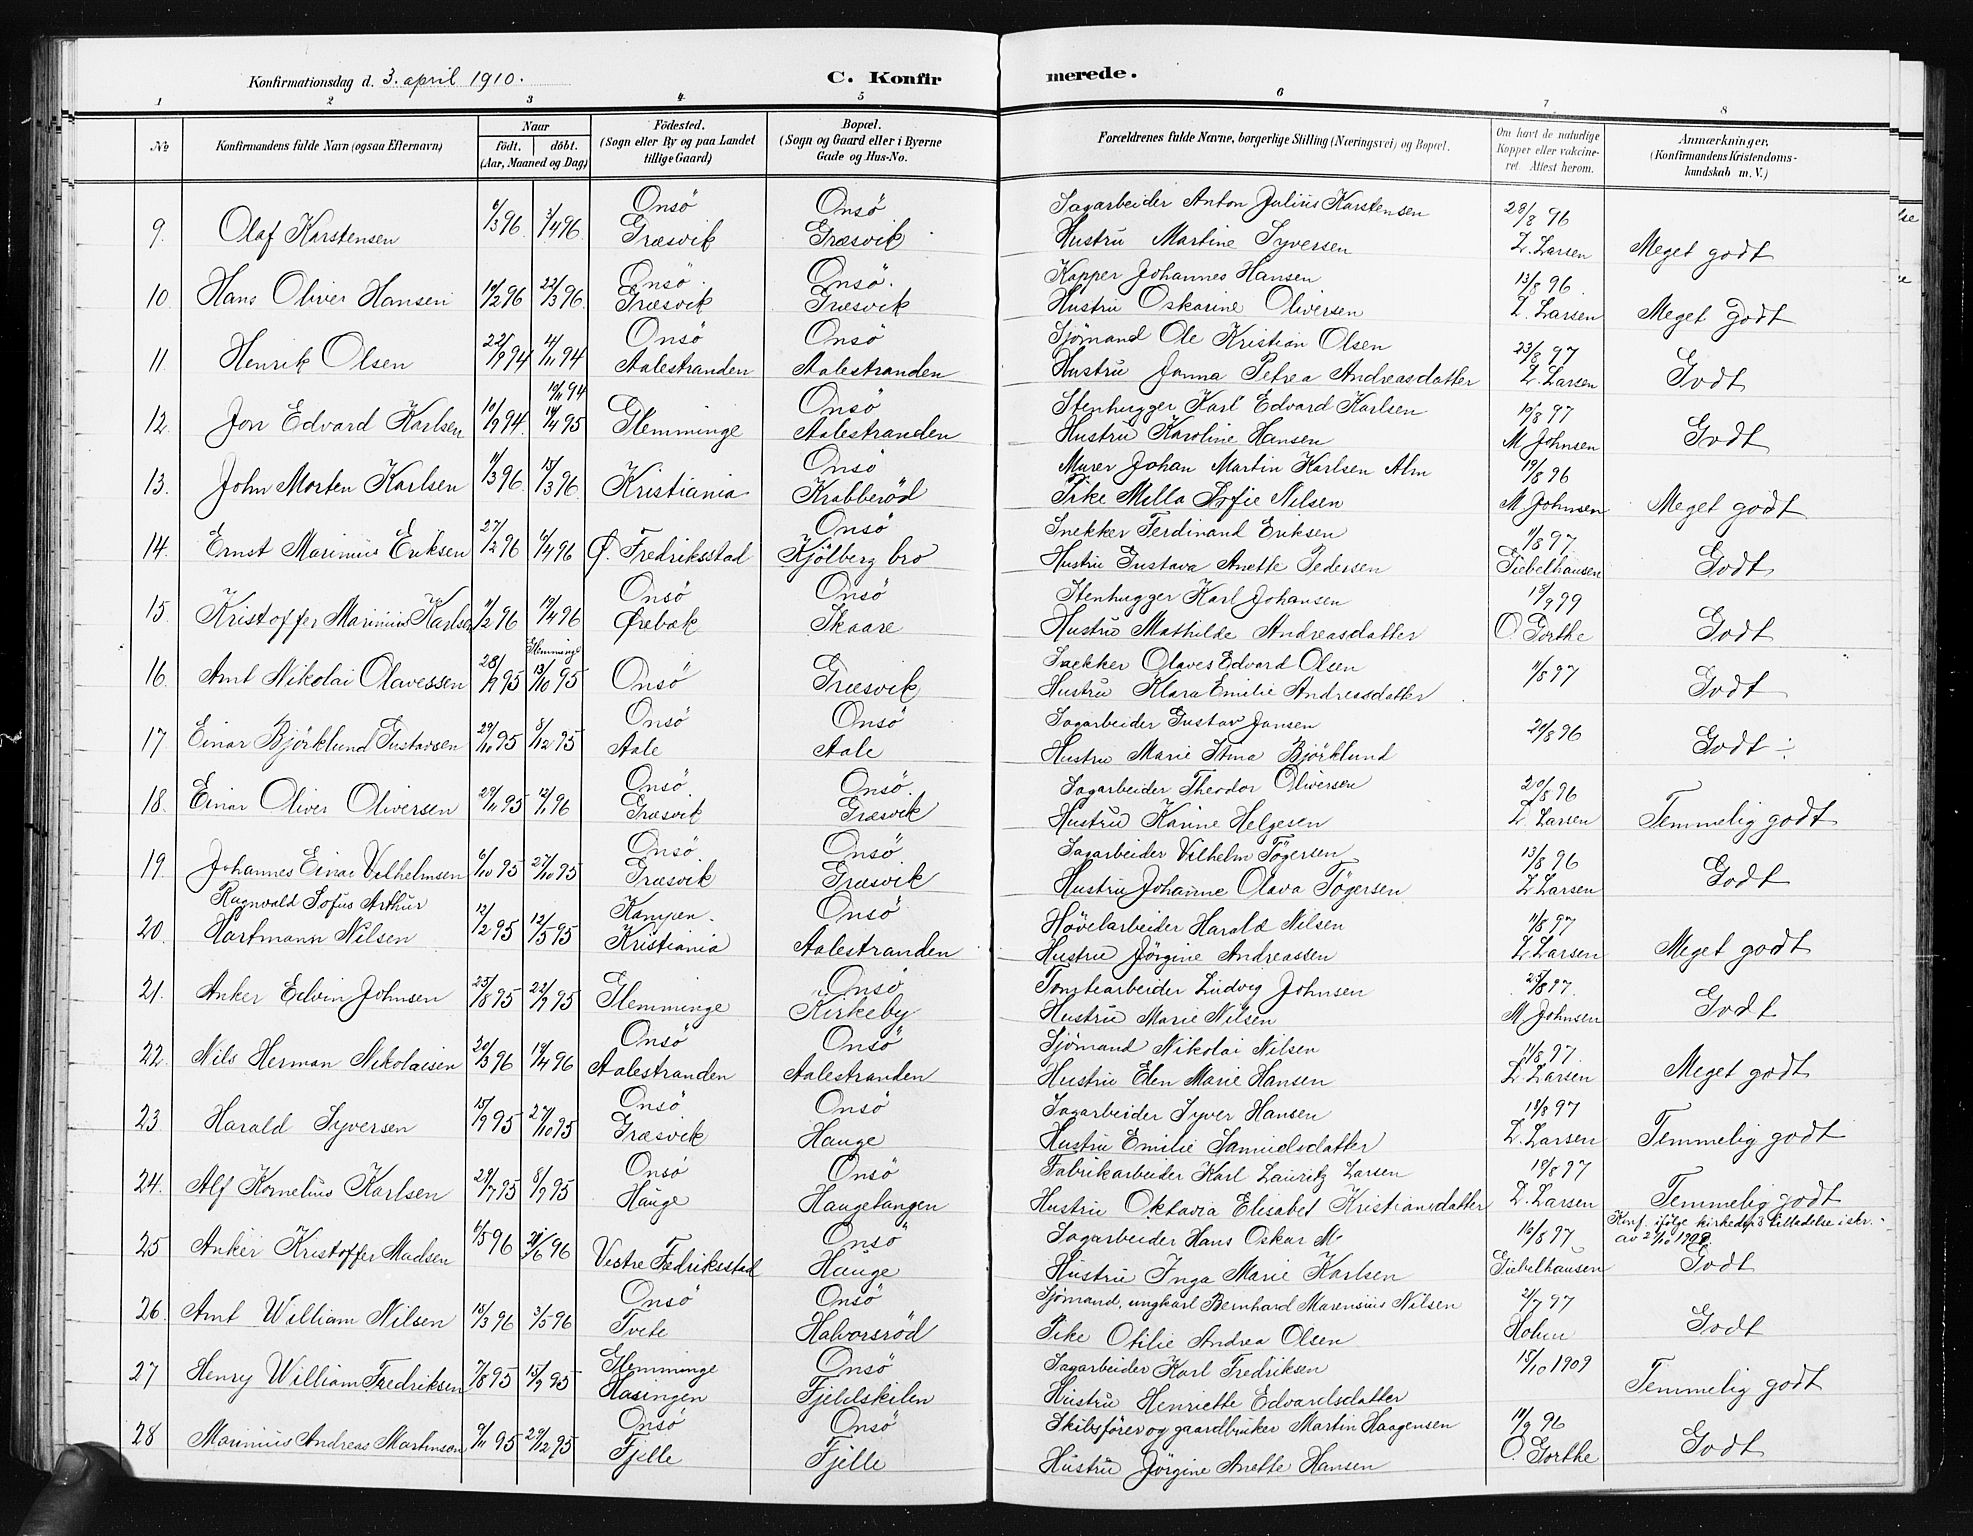 Konfirmationsdag d. 3. april 1910. C. Konfirmerede.
1 2 3 4 5 6 7 8
No Konfirmandens fulde Navn (ogsaa Efternavn) Naar födt. döbt. (Aar, Maaned og Dag) Födested. (Sogn eller By og paa Landet tillige Gaard) Bopæl. (Sogn og Gaard eller i Byerne Gade og Hus-No.) Forældrenes fulde Navne, borgerlige Stilling (Næringsvei) og Bopæl. Om havt de naturlige Kopper eller vakcineret. Attest herom. Anmærkninger. (Konfirmandens Kristendomskundskab m. V.)
Onsö Onsö Sagarbeider Anton Julius Karstensen 28/8 96
9. Olaf Karstensen 6/3 96 3/4 96 Græsvik Græsvik Hustru Martine Syversen L. Larsen Meget godt
Onsö Onsö Kapper Johannes Hansen 13/8 96
10. Hans Oliver Hansen 19/2 96 22/3 96 Græsvik Græsvik Hustru Oskarine Oliversen L. Larsen Meget godt
Onsö Onsö Sjömand Ole Kristian Olsen 23/8 97
11. Henrik Olsen 22/9 94 11/11 94 Aalestranden Aalestranden Hustru Janna Petrea Andreasdatter L. Larsen Godt
Onsö Stenhugger Karl Edvard Karlsen 19/8 97
12. Jon Edvard Karlsen 10/9 94 14/4 95 Glemminge Aalestranden Hustru Karoline Hansen M Johnsen Godt
Onsö Murer Johan Martin Karlsen Alm 19/8 96
13. John Morten Karlsen 1/3 96 15/3 96 Kristiania Krabberöd Pike Milla Sofie Nilsen M Johnsen Meget godt
Onsö Snekker Ferdinand Eriksen 11/8 97
14. Ernst Marinius Eriksen 27/2 96 6/4 96 Ø. Fredriksstad Kjölberg bro Hustru Gustava Anette Pedersen Giebelhausen Godt
Onsö Onsö Stenhugger Karl Johansen 15/9 99
15. Kristoffer Marinius Karlsen 11/2 96 19/4 96 Ørebæk Skaare Hustru Mathilde Andreasdatter O. Gorthe Godt
Glemminge Snekker Olaves Edvard Olsen
16. Arnt Nikolai Olavessen 28/9 95 13/10 95 Onsö Græsvik Hustru Klara Emilie Andreasdatter 11/8 97 Godt
Onsö Onsö Sagarbeider Gustav Jansen
17. Einar Björklund Gustavsen 29/10 95 8/12 95 Aale Aale Hustru Marie Stina Björklund 20/8 96 Godt ÷
Onsö Onsö Sagarbeider Theodor Oliversen 20/8 96
18. Einar Oliver Oliversen 29/11 95 12/1 96 Græsvik Græsvik Hustru Karine Helgesen L. Larsen Temmelig godt
Onsö Onsö Sagarbeider Vilhelm Tögersen 13/8 96
19. Johannes Einar Vilhelmsen 6/10 95 27/10 95 Græsvik Græsvik Hustru Johanne Olava Tögersen L Larsen Godt
Ragnvald Sofus Arthur Kampen Onsö Hövelarbeider Harald Nilsen 11/8 97
20. Hartmann Nilsen 12/2 95 12/5 95 Kristiania Aalestranden Hustru Jörgine Andreassen L. Larsen Meget godt
Onsö Tomtearbeider Ludvig Johnsen 25/8 97.
21. Anker Edvin Johnsen 25/8 95 22/9 95 Glemminge Kirkeby Hustru Marie Nilsen M. Johnsen Godt
Onsö Onsö Sjömand Nikolai Nilsen 11/8 97.
22. Nils Herman Nikolaisen 20/3 96 19/4 96 Aalestranden Aalestranden Hustru Elen Marie Hansen L. Larsen Meget godt
Onsö Onsö Sagarbeider Syver Hansen 18/8 97
23 Harald Syversen 15/9 95 27/10 95 Græsvik Hauge Hustru Emilie Samuelsdatter L. Larsen Temmelig godt
Onsö Onsö Fabrikarbeider Karl Lauritz Larsen 18/8 97
24. Alf Kornelius Karlsen 29/7 95 8/9 95 Hauge Haugetangen Hustru Oktavia Elisabet Kristiansdatter L. Larsen Temmelig godt
Onsö Sagarbeider Hans Oskar M. 16/8 97 Konf. ifölge kirkedep's tilladelse i skr. av 2/10 1909.
25 Anker Kristoffer Madsen 6/5 96 21/6 96 Vestre Fredriksstad Hauge Hustru Inga Marie Karlsen Giebelhausen Godt
Onsö Onsö Sjömand, ungkarl Bernhard Marensius Nilsen 2/7 97
26. Arnt William Nilsen 18/3 96 3/5 96 Tvete Halvorsröd Pike Otilie Andrea Olsen Holum Godt
Glemminge Onsö Sagarbeider Karl Fredriksen 15/10 1909
27 Henry William Fredriksen 7/8 95 15/9 95 Haugen Fjeldskilen Hustru Henriette Edvardsdatter Temmelig godt
Onsö Onsö Skibsförer og gaardbruker Martin Haagensen 18/9 96
28 Marinius Andreas Martinsen 9/11 95 29/12 95 Fjelle Fjelle Hustru Jörgine Anette Hansen O. Gorthe Godt